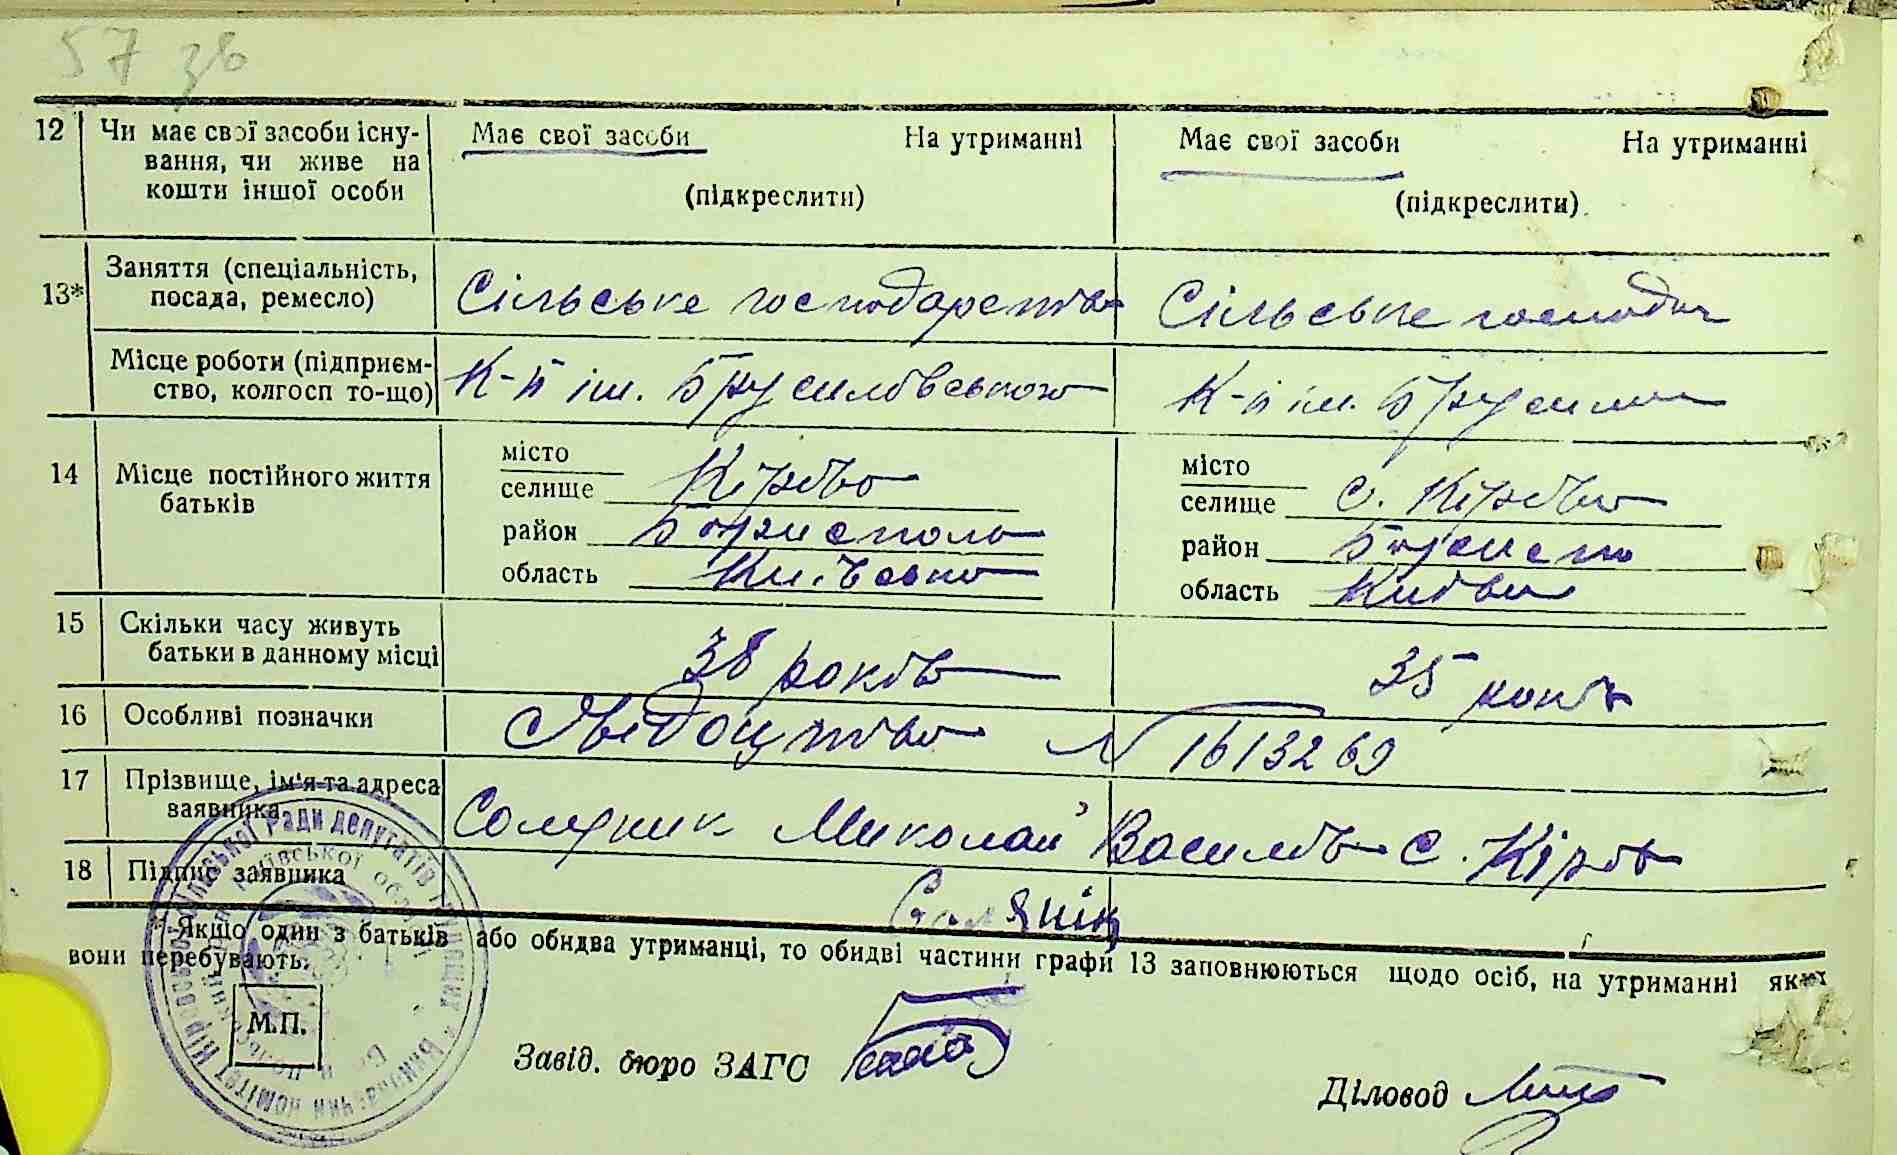 57 зв
12 Чи має свої засоби існу- Має свої засоби На утриманні Має свої засоби На утриманні
вання, чи живе на
кошти іншої особи (підкреслити) (підкреслити)
13* Заняття (спеціальність, посада, ремесло) Сільське господарство Сільське господар
Місце роботи (підприєм-
ство, колгосп то-що) К-п ім. Брусилівського К-п ім. Брусил
14 Місце постійного життя батьків місто селище Кірово місто селище с. Кірово
район Бориспол район Бориспо
область Київсько область Київсь
15 Скільки часу живуть
батьки в данному місці 38 років 35 років
16 Особливі позначки Свідоцтво N 1613269
17 Прізвище, ім'я та адреса
заявника Солуник Миколай Василів с. Кіров
18 Підпис заявника
Якщо один з батьків або обидва утриманці, то обидві частини графи 13 заповнюються щодо осіб, на утриманні яких
вони перебувають.
М.П.
Завід. бюро ЗАГС
Діловод